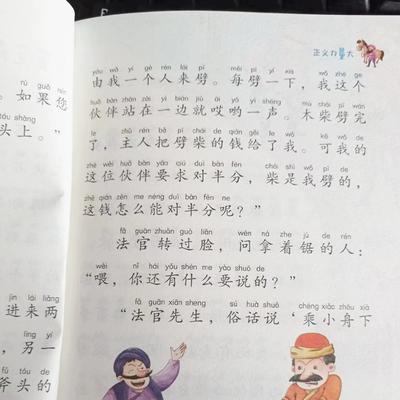 rú guǒ nín
如果您
tóu shàng
头上。”
jìn lái liǎng
进来两
lìng yí
，另一
斧头的
正义力量大
yóu wǒ yí gè rén lái pī měi pī yí xià wǒ zhè ge
由我一个人来劈。每劈一下，我这个
huǒ bàn zhàn zài yì biān jiù āi yō yì shēng mù chái pī wán
伙伴站在一边就哎哟一声。木柴劈完
le zhǔ rén bǎ pī chái de qián gěi le wǒ kě wǒ de
了，主人把劈柴的钱给了我。可我的
zhè wèi huǒ bàn yāo qiú duì bàn fēn chái shì wǒ pī de
这位伙伴要求对半分，柴是我劈的，
zhè qián zěn me néng duì bàn fēn ne
这钱怎么能对半分呢？”
fǎ guān zhuǎn guò liǎn wèn ná zhe jù de rén
法官转过脸，问拿着锯的人：
wèi nǐ hái yǒu shén me yào shuō de
“喂，你还有什么要说的？”
fǎ guān xiān sheng sú huà shuō chéng xiǎo zhōu xià
“法官先生，俗话说‘乘小舟下